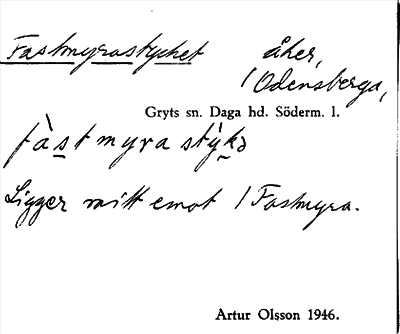 Fastmyrastycket åker,
/ Odensberga,
Gryts sn. Daga hd. Söderm. l.
fàstmyrastỳkə
Ligger mitt emot / Fastmyra.
Artur Olsson 1946.